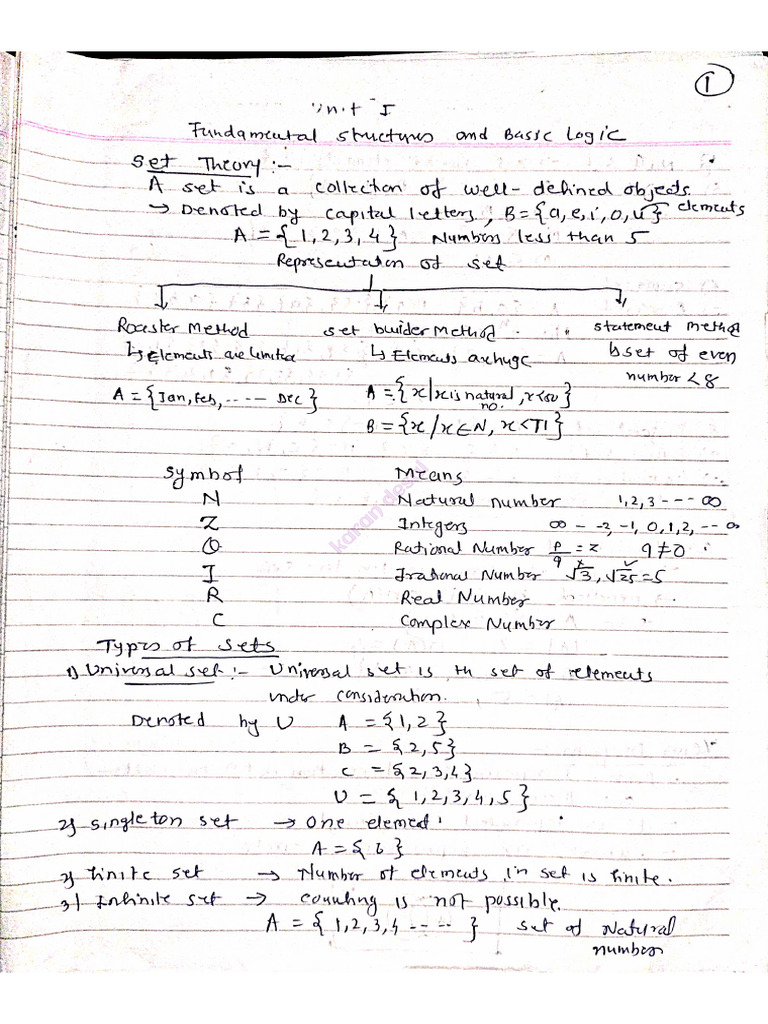 1
Unit I
Fundamental structures and Basic Logic
Set Theory :-
A set is a collection of well-defined objects.
→ Denoted by capital letters, B = {a, e, i, o, u} elements
A = {1, 2, 3, 4} Numbers less than 5
Representation of set
Roaster Method set buider Method. statement method
↳ Elements are limited ↳ Elements are huge ↳ set of even
number < 8
A = {Jan, Feb, ---- Dec} A = {x/x is natural no., x<50}
B = {x/x∈N, x<71}
Symbol Means
N Natural number 1, 2, 3 --- ∞
Z Integers ∞ - -2, -1, 0, 1, 2, -- ∞
Q Rational Number p/q = z q ≠ 0
I Irrational Number √3, √25 = 5
R Real Number
C Complex Number
karan desai
Types of sets
1) Universal set :- Universal set is th set of elements
under consideration.
Denoted by U A = {1, 2}
B = {2, 5}
C = {2, 3, 4}
U = {1, 2, 3, 4, 5}
2) singleton set → One elemed
A = {6}
2) finite set → Number of elements in set is finite.
3) Infinite set → counting is not possible.
A = {1, 2, 3, 4 -----} set of Natural
number